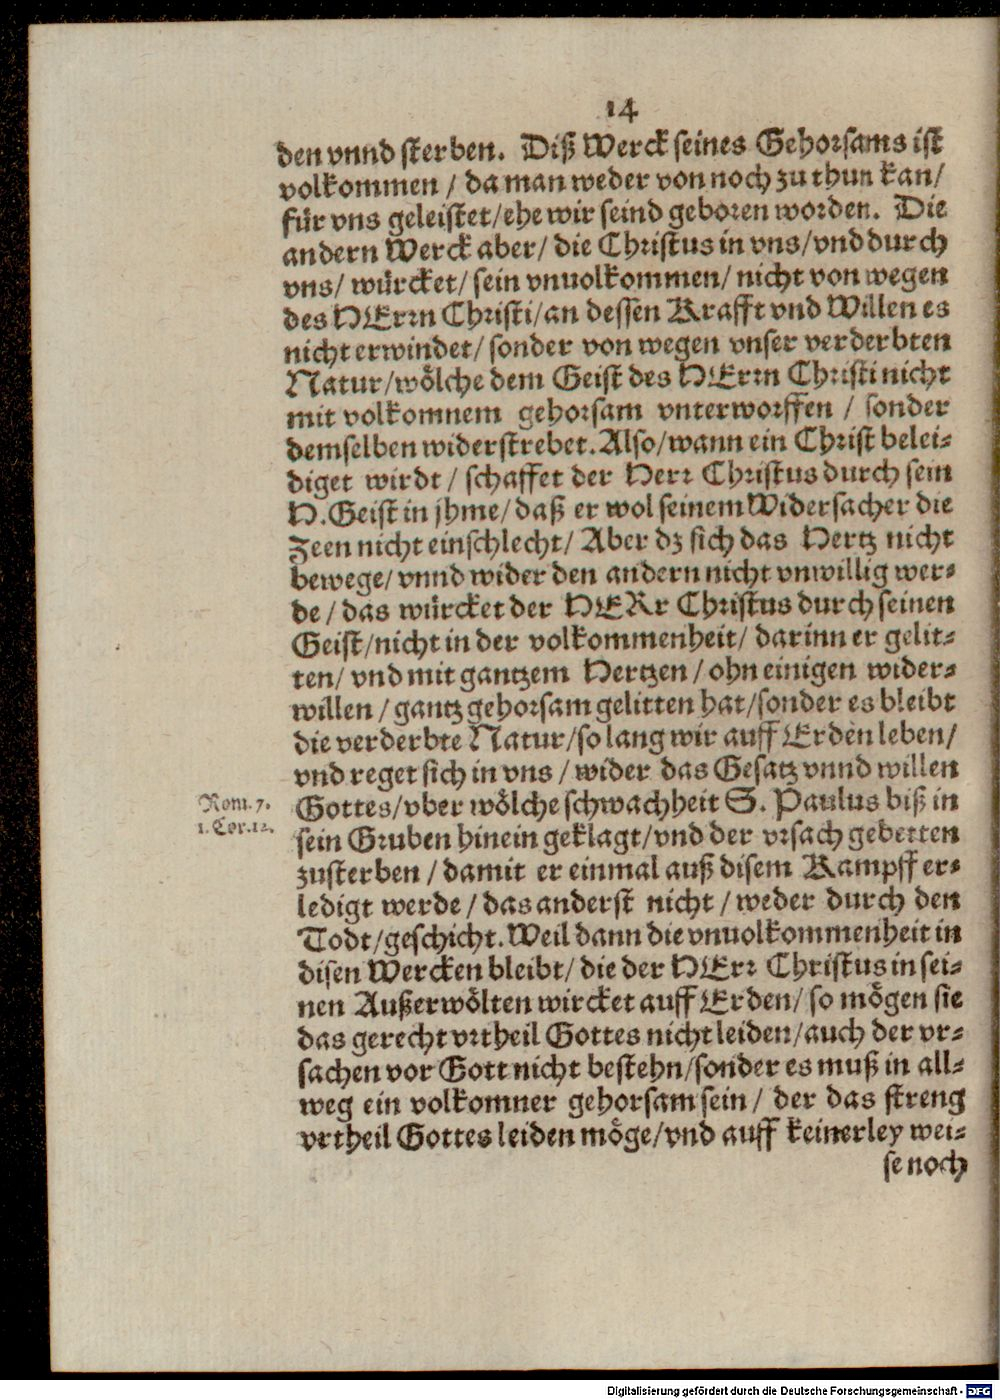 14
den vnnd sterben. Diß Werck seines Gehorsams ist
volkommen / da man weder von noch zu thun kan/
für vns geleistet/ehe wir seind geboren worden. Die
andern Werck aber/ die Christus in vns/vnd durch
vns/ würcket/ sein vnuolkommen/ nicht von wegen
des HErrn Christi/an dessen Krafft vnd Willen es
nicht erwindet/ sonder von wegen vnser verderbten
Natur/wölche dem Geist des HErrn Christi nicht
mit volkomnem gehorsam vnterworffen / sonder
demselben widerstrebet. Also/wann ein Christ belei-
diget wirdt / schaffet der Herr Christus durch sein
H. Geist in jhme/ daß er wol seinem Widersacher die
Zeen nicht einschlecht/ Aber dz sich das Hertz nicht
bewege/ vnnd wider den andern nicht vnwillig wer-
de / das würcket der HERr Christus durch seinen
Geist/nicht in der volkommenheit/ darinn er gelit-
ten/ vnd mit gantzem Hertzen / ohn einigen wider-
willen / gantz gehorsam gelitten hat/sonder es bleibt
die verderbte Natur/so lang wir auff Erden leben/
vnd reget sich in vns / wider das Gesatz vnnd willen
Rom. 7.
1. Cor. 12.
Gottes/vber wölche schwachheit S. Paulus biß in
sein Gruben hinein geklagt/vnd der vrsach gebetten
zusterben / damit er einmal auß disem Kampff er-
ledigt werde / das anderst nicht / weder durch den
Todt/geschicht. Weil dann die vnuolkommenheit in
disen Wercken bleibt/ die der HErr Christus in sei-
nen Außerwölten wircket auff Erden/ so mögen sie
das gerecht vrtheil Gottes nicht leiden/auch der vr-
sachen vor Gott nicht bestehn/sonder es muß in all-
weg ein volkomner gehorsam sein / der das streng
vrtheil Gottes leiden möge/vnd auff keinerley wei-
se noch
Digitalisierung gefördert durch die Deutsche Forschungsgemeinschaft - DFG